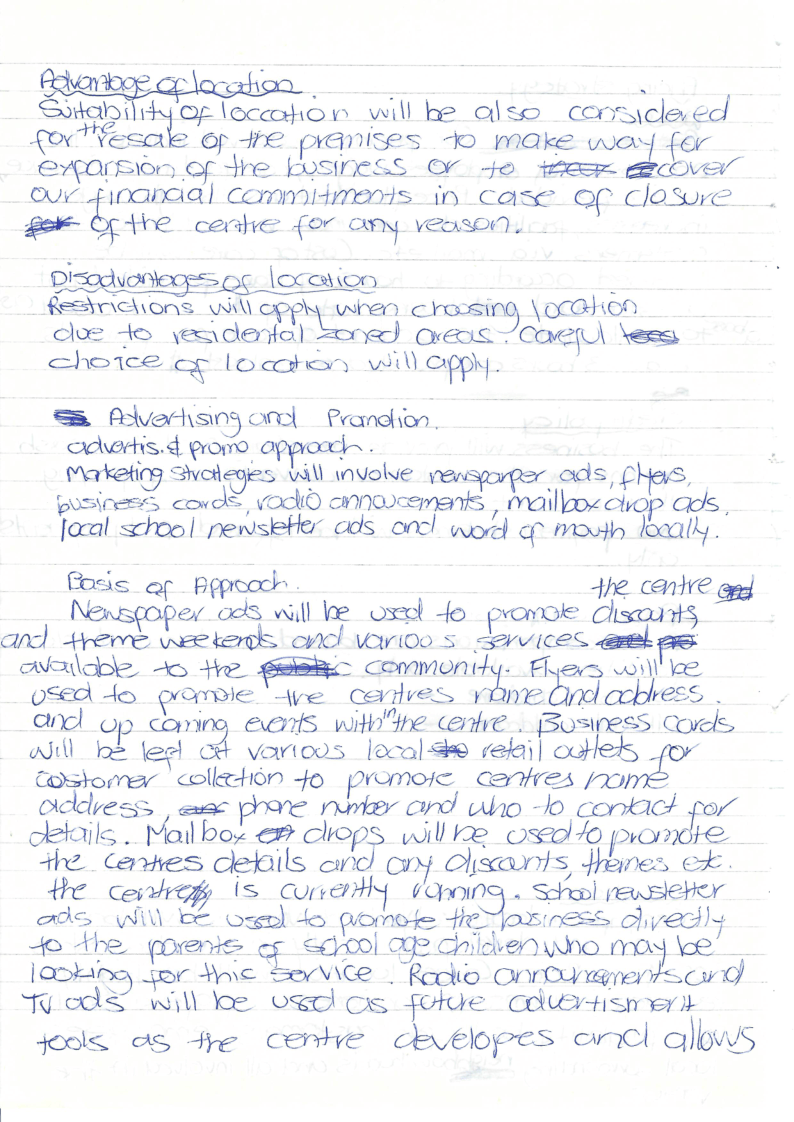 Advantage of location.
Suitability of loccation will be also considered
for the resale of the premises to make way for
expansion of the business or to cover
our financial commitments in case of closure
of the centre for any reason.
Disadvantages of location
Restrictions will apply when choosing location
due to residental zoned areas. Careful
choice of location will apply.
Advertising and Promotion.
advertis. & promo, approach.
Marketing strategies will involve newsparper ads, flyers,
business cards, radio annoucements, mailbox drop ads,
local school newsletter ads and word of mouth locally.
Basis of Approach. the centre
Newspaper ads will be used to promote discounts,
and theme weekends and various services
available to the community. Flyers will be
used to promote the centres name and address.
and up coming events within the centre. Business cards
will be left at various local retail outlets for
customer collection to promote centres name
address, phone number and who to contact for
details. Mailbox drops will be used to promote
the centres details and any discounts, themes etc.
the centre is currently running. School newsletter
ads will be used to promote the business directly
to the parents of school age children who may be
looking for this service. Radio announcements and
TV ads will be used as future advertisment
tools as the centre developes and allows